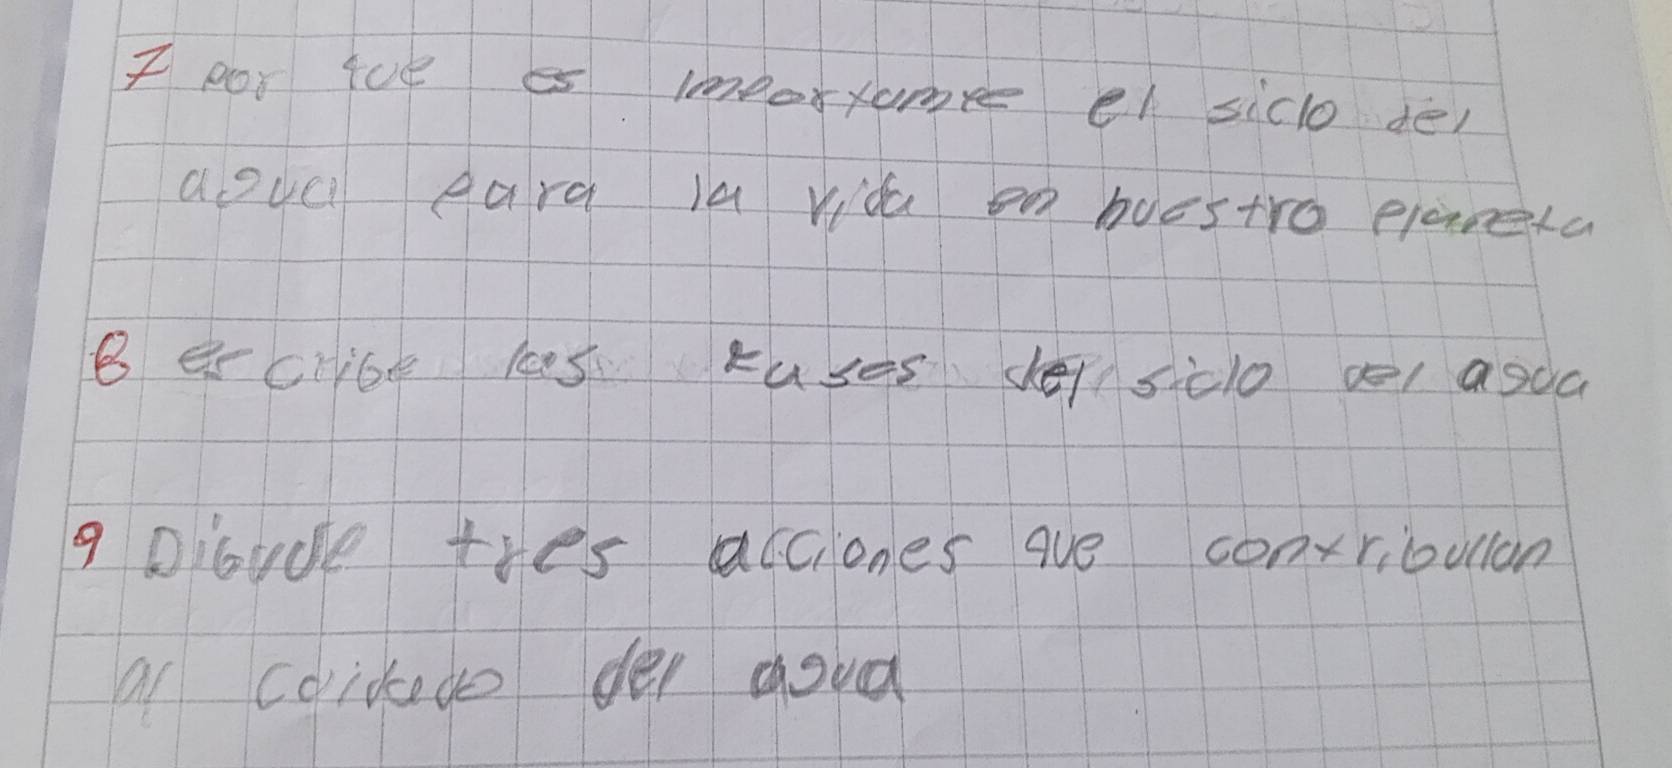 7 por que es importante el siclo del
agua para la vida en nuestro planeta
8 escribe las fases del siclo del agua
9 Dibuje tres acciones que contribullan
al coidado del agua